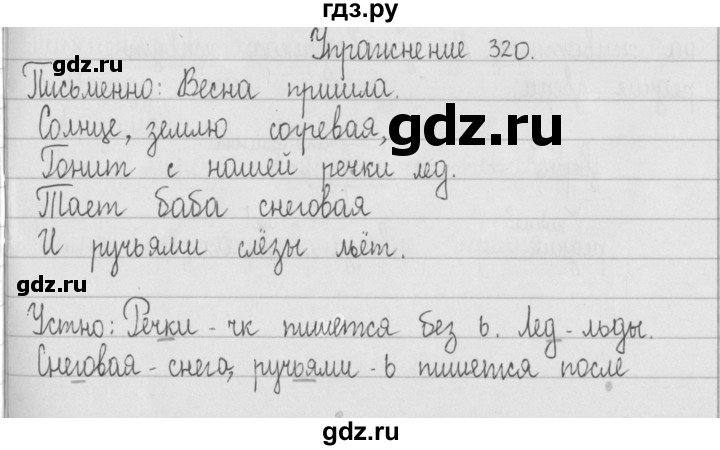 гдз.ру
Упражнение 320.
gdz.ru
Письменно: Весна пришла.
gdz.ru
Солнце, землю согревая,
gdz.ru
gdz.ru
Гонит с нашей речки лед.
gdz.ru
Тает баба снеговая
gdz.ru
И ручьями слёзы льёт.
gdz.ru
gdz.ru
Устно: Речки - чк пишется без ь. Лед - льды.
Снеговая - снег, ручьями - ь пишется после
gdz.ru
gdz.ru